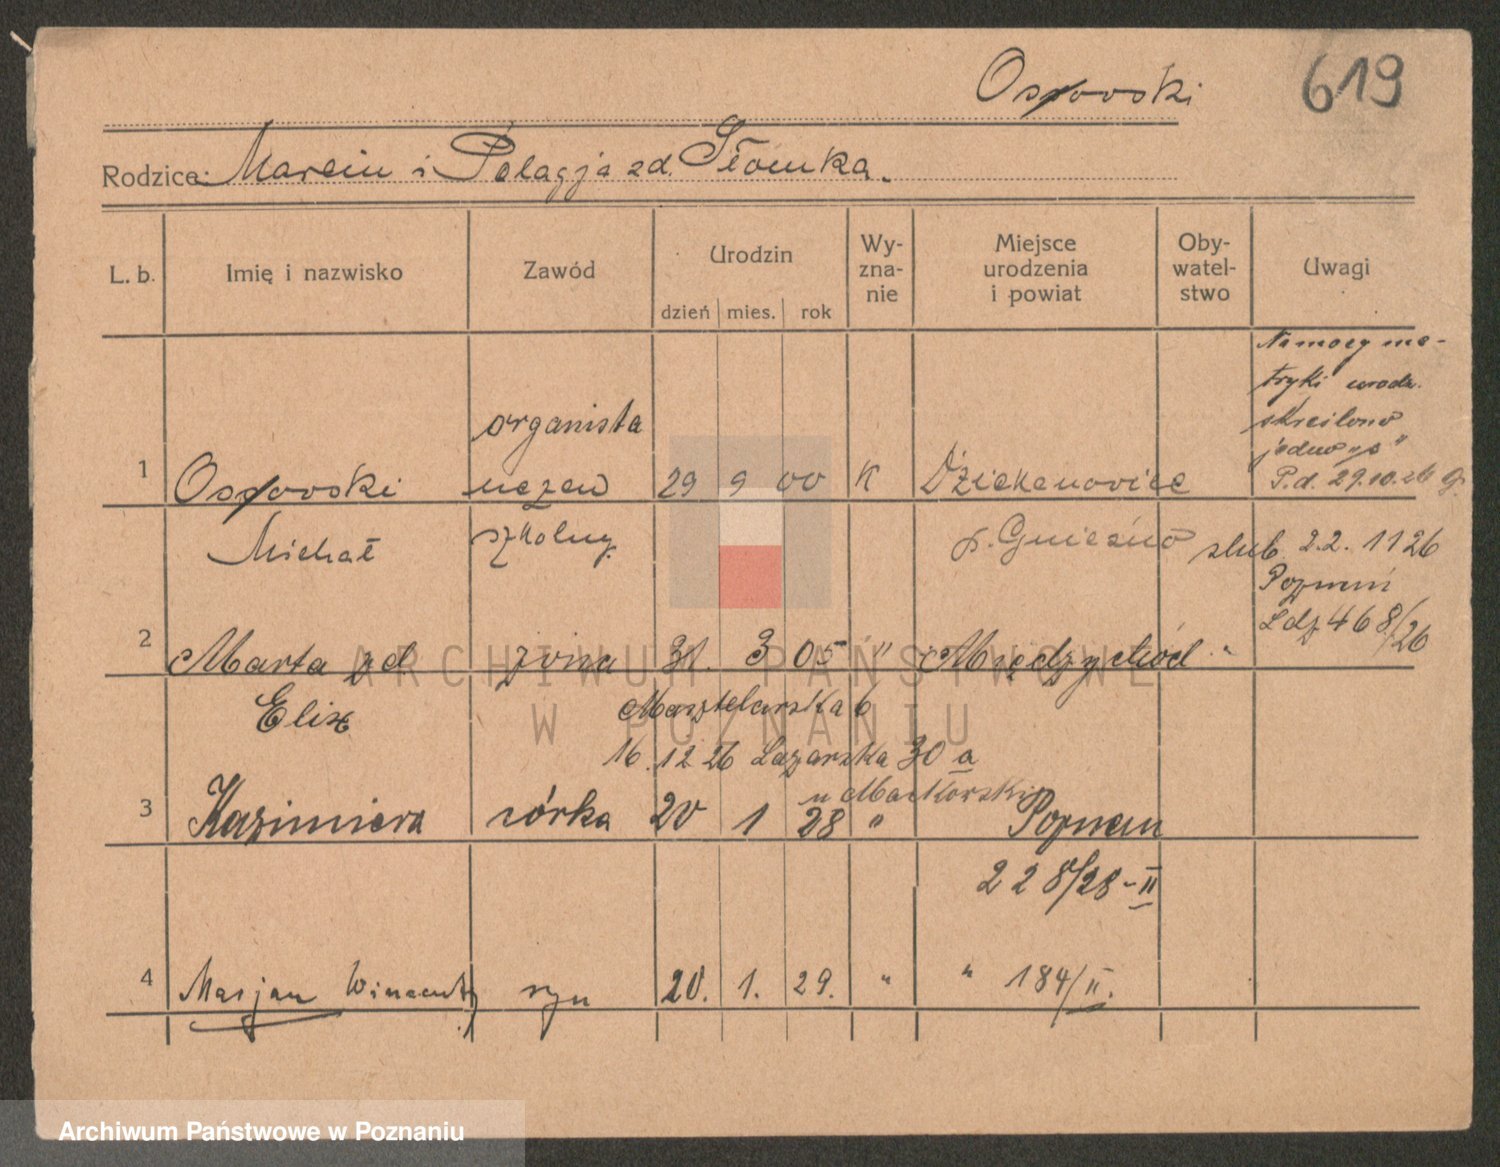 Osowski
619
Rodzice: Marcin i Pelagja zd. Słomka.
L. b.
Imię i nazwisko
Zawód
Urodzin
dzień mies. rok
Wy-
zna-
nie
Miejsce
urodzenia
i powiat
Oby-
watel-
stwo
Uwagi
Na mocy me-
tryki urodz.
skreślono
jedno „s"
P.d. 29.10.26
organista
1 Osowski uczeń 29 9 00 K Dziekanowice
Michał szkolny. p. Gniezno ślub. 2.2. 1126
Poznań
Ldz 468/26
2 Marta zd żona 31. 3 05 " Międzychód "
Elix Masztalarska 6
16.12 26 Łazarska 30 a
u Maciorski
3 Kazimiera córka 20 1 28 " Poznan
228/28-II
4 Marjan Wincenty syn 20. 1. 29. " " 184/II.
ARCHIWUM PAŃSTWOWE
W POZNANIU
Archiwum Państwowe w Poznaniu